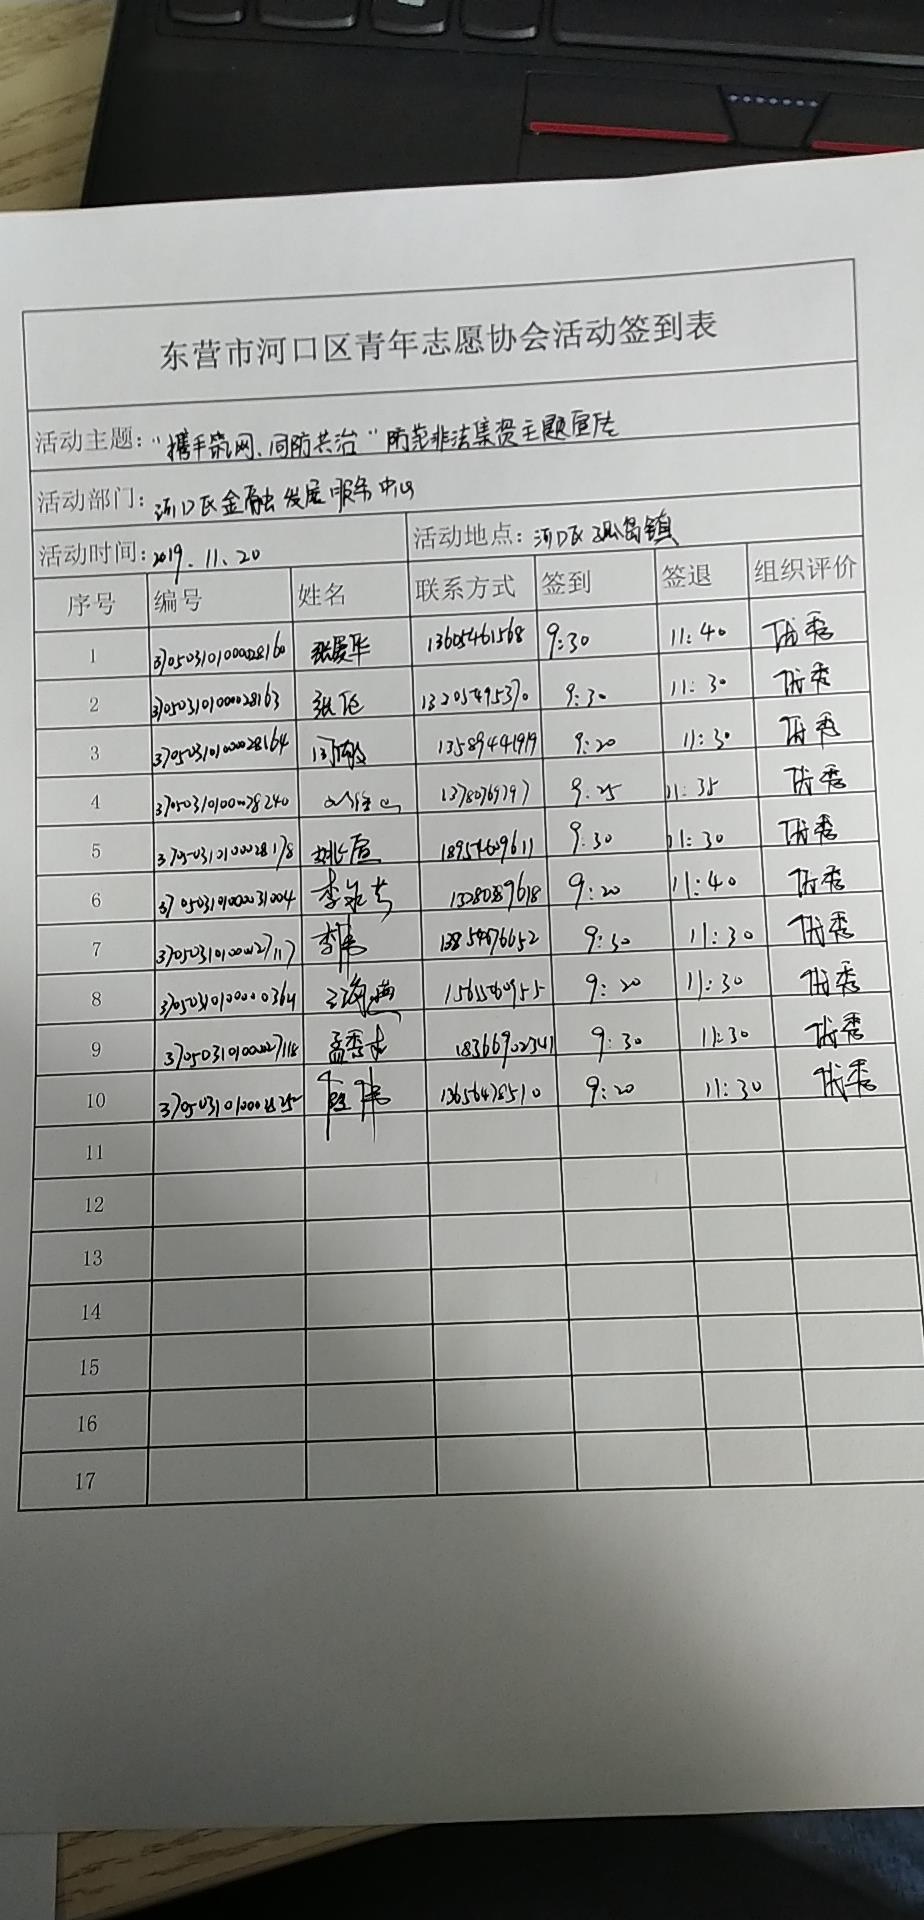 东营市河口区青年志愿协会活动签到表
活动主题："携手筑网、同防共治"防范非法集资主题宣传
活动部门：河口区金融发展服务中心
活动时间：2019.11.20 活动地点：河口区孤岛镇
序号 编号 姓名 联系方式 签到 签退 组织评价
1 370503101000028160 张爱华 13605461568 9:30 11:40 优秀
2 370503101000028163 13205495370 9:30 11:30 优秀
3 370503101000028164 13589441919 9:20 11:30 优秀
4 370503101000028240 9:25 11:35 优秀
5 370503101000028178 18954609611 9:30 11:30 优秀
6 370503101000031004 9:20 11:40 优秀
7 370503101000027117 李伟 13854676652 9:30 11:30 优秀
8 9:20 11:30 优秀
9 370503101000027118 18366902341 9:30 11:30 优秀
10 13656478510 9:20 11:30 优秀
11
12
13
14
15
16
17